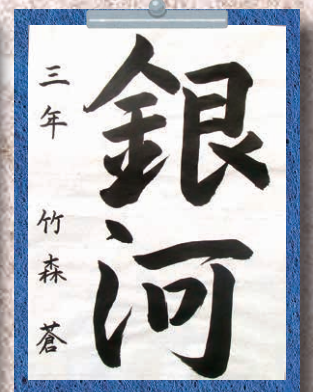 銀河
三年 竹森 蒼